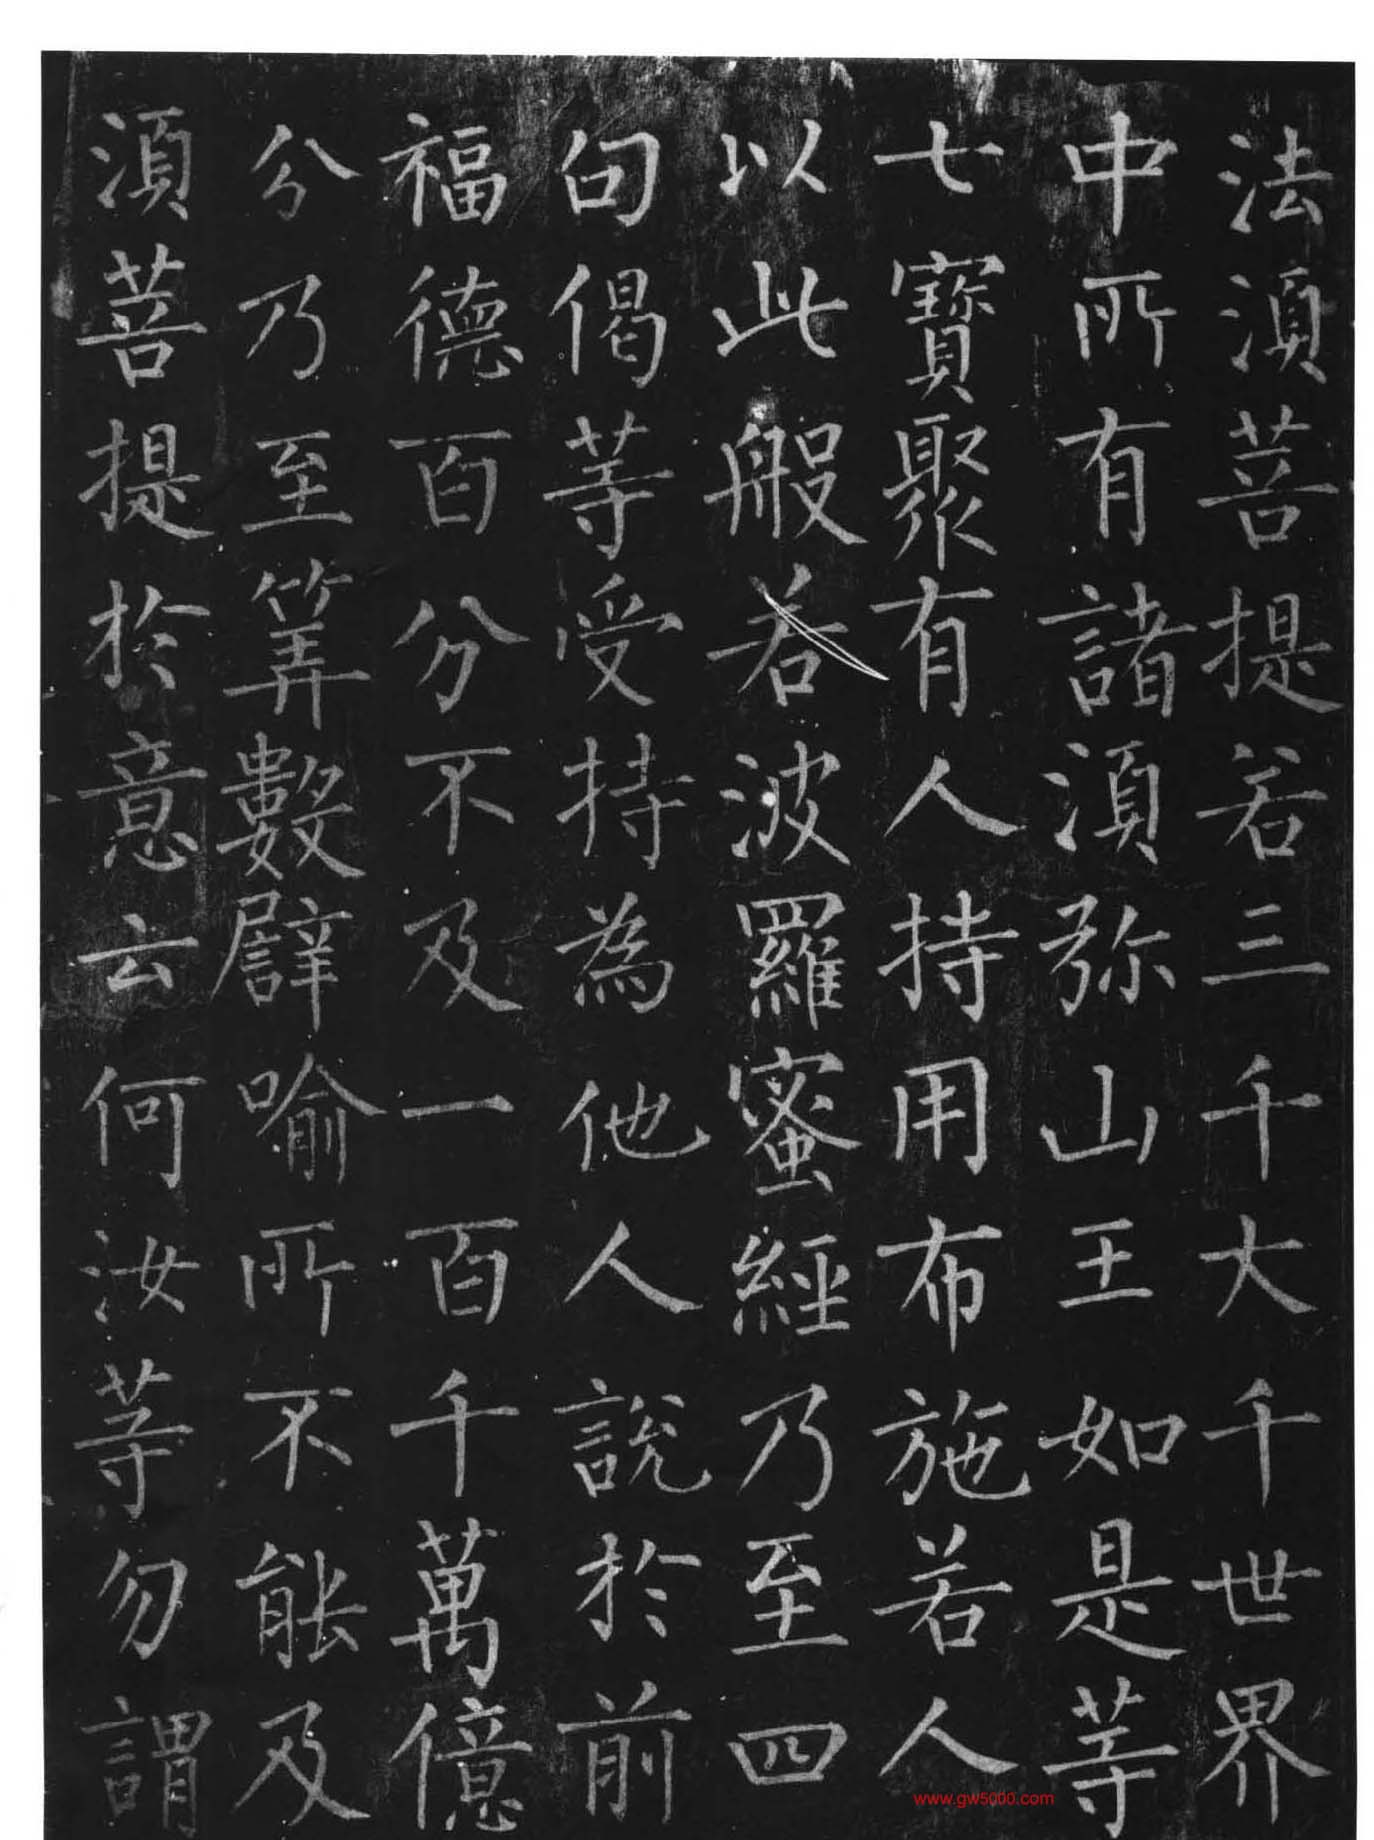 法湏菩提若三千大千世界
中所有諸湏弥山王如是等
七寶聚有人持用布施若人
以此般若波羅蜜經乃至四
句偈等受持為他人說於前
福德百分不及一百千萬億
分乃至筭數譬喻所不能及
湏菩提於意云何汝等勿謂
www.gw5000.com